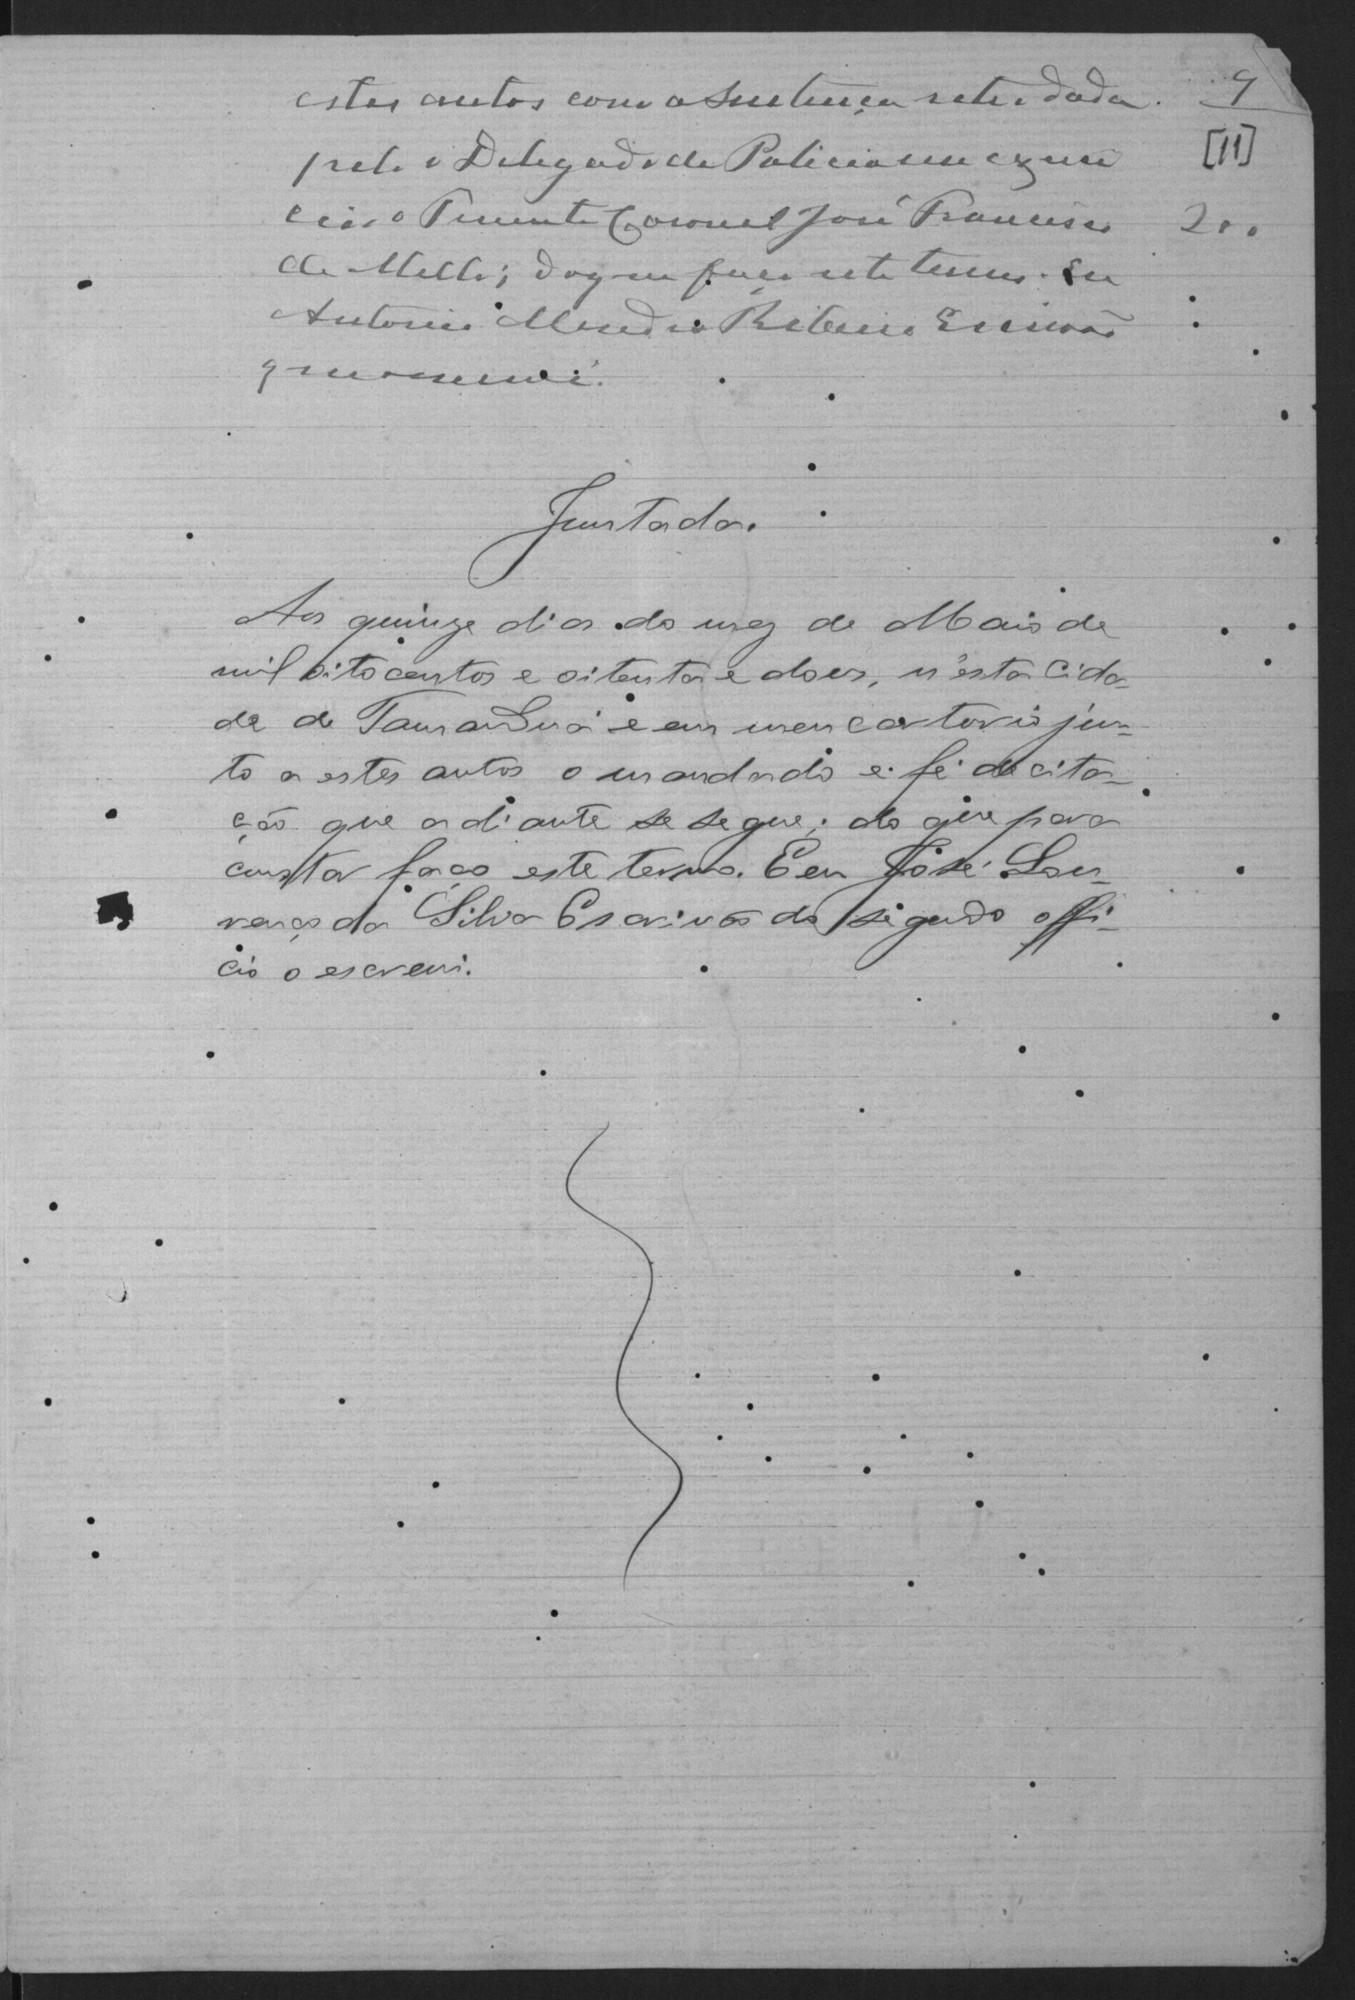 9
[11]
estes autos com a Sentença retro dada
pelo o Delegado de Policia em exerci
cicio o Tenente Coronel José Francisco
200
de Mello; do que faço este termo. Eu
Antonio Ribeiro Escrivão
que o escrevi.
Juntada.
Aos quinze dias do mez de Maio de
mil oitocentos e oitenta e dous, n'esta Cida-
de de e em meu cartorio jun-
to a estes autos o mandado e fé de cita-
ção que adiante se segue; do que para
constar faço este termo. E eu José Lou-
renço da Silva Escrivão do segundo offi-
cio o escrevi.